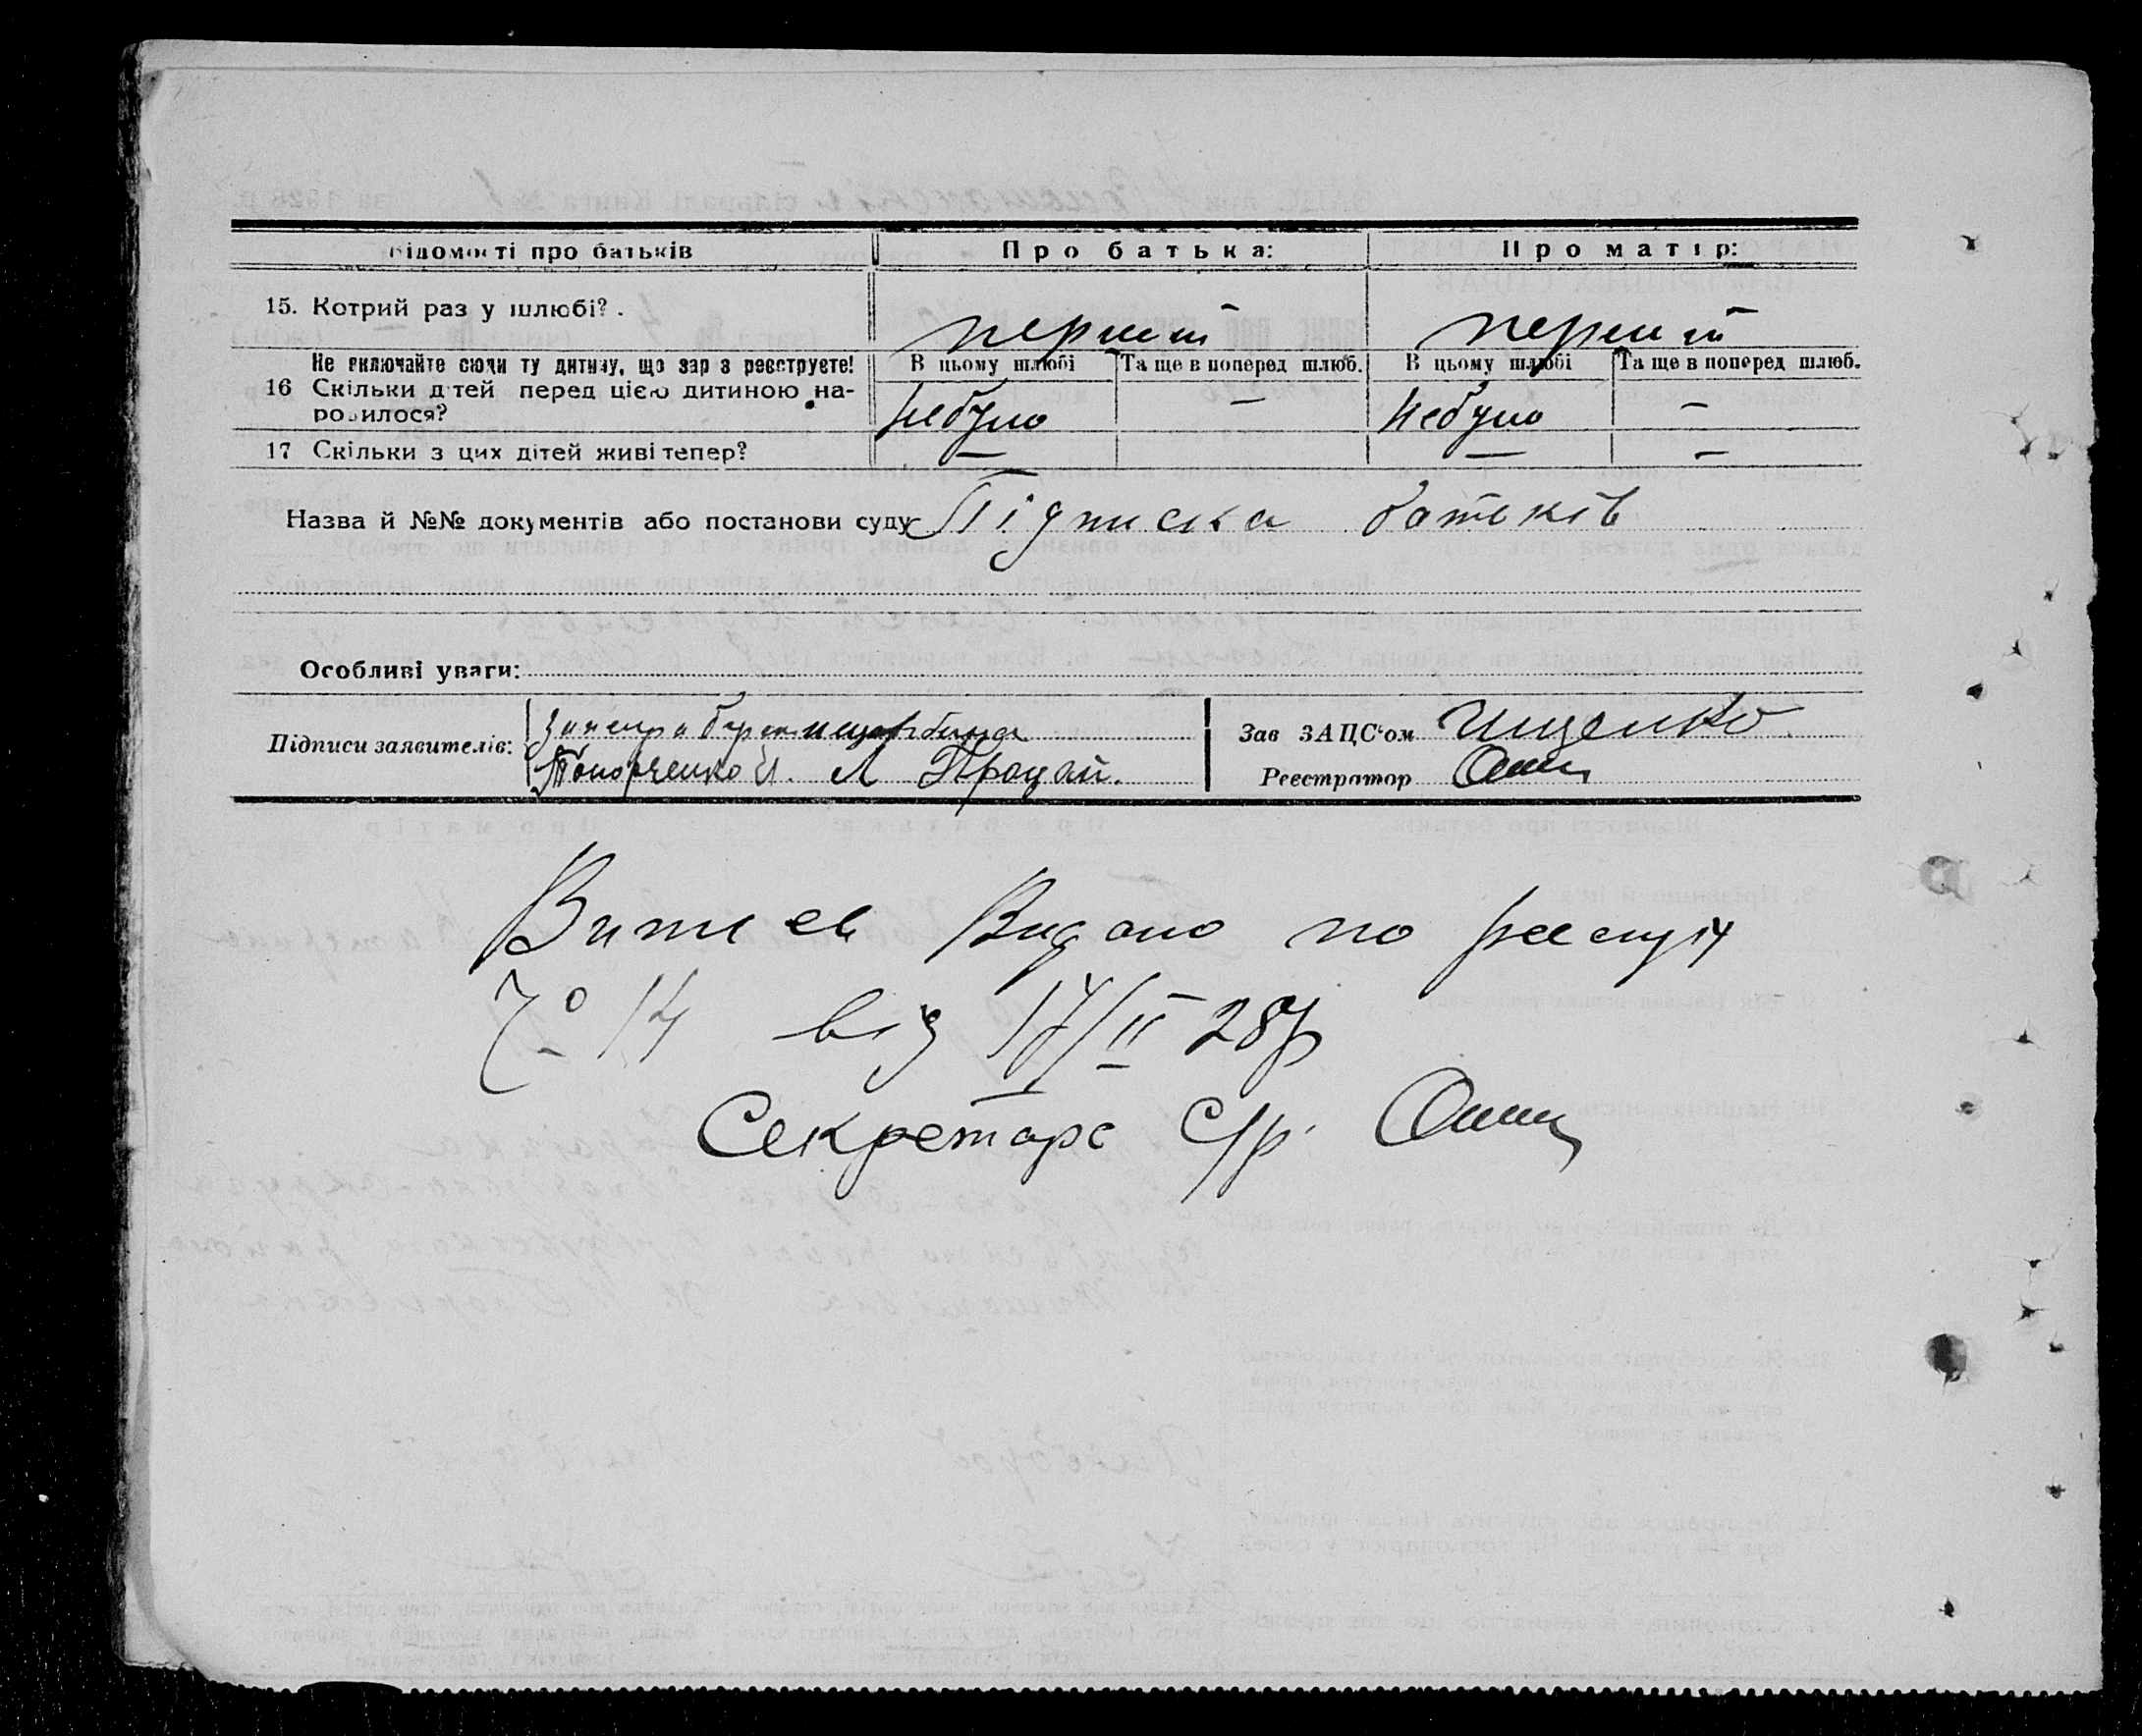 Відомості про батьків Про батька: Про матір:
15. Котрий раз у шлюбі? перший перший
Не включайте сюди ту дитину, що зараз реєструєте! В цьому шлюбі Та ще в поперед шлюб. В цьому шлюбі Та ще в поперед шлюб.
16 Скільки дітей перед цією дитиною на-
родилося? Небуло — Небуло —
17 Скільки з цих дітей живі тепер? — — —
Назва й №№ документів або постанови суду Підписка батьків
Особливі уваги:
Підписи заявителів:
Процай.
Зав ЗАЦС'ом Ищенко
Реєстратор
Витяг Видано по реєстру
№ 14 від 17/II 28р
Секретарь С/р.